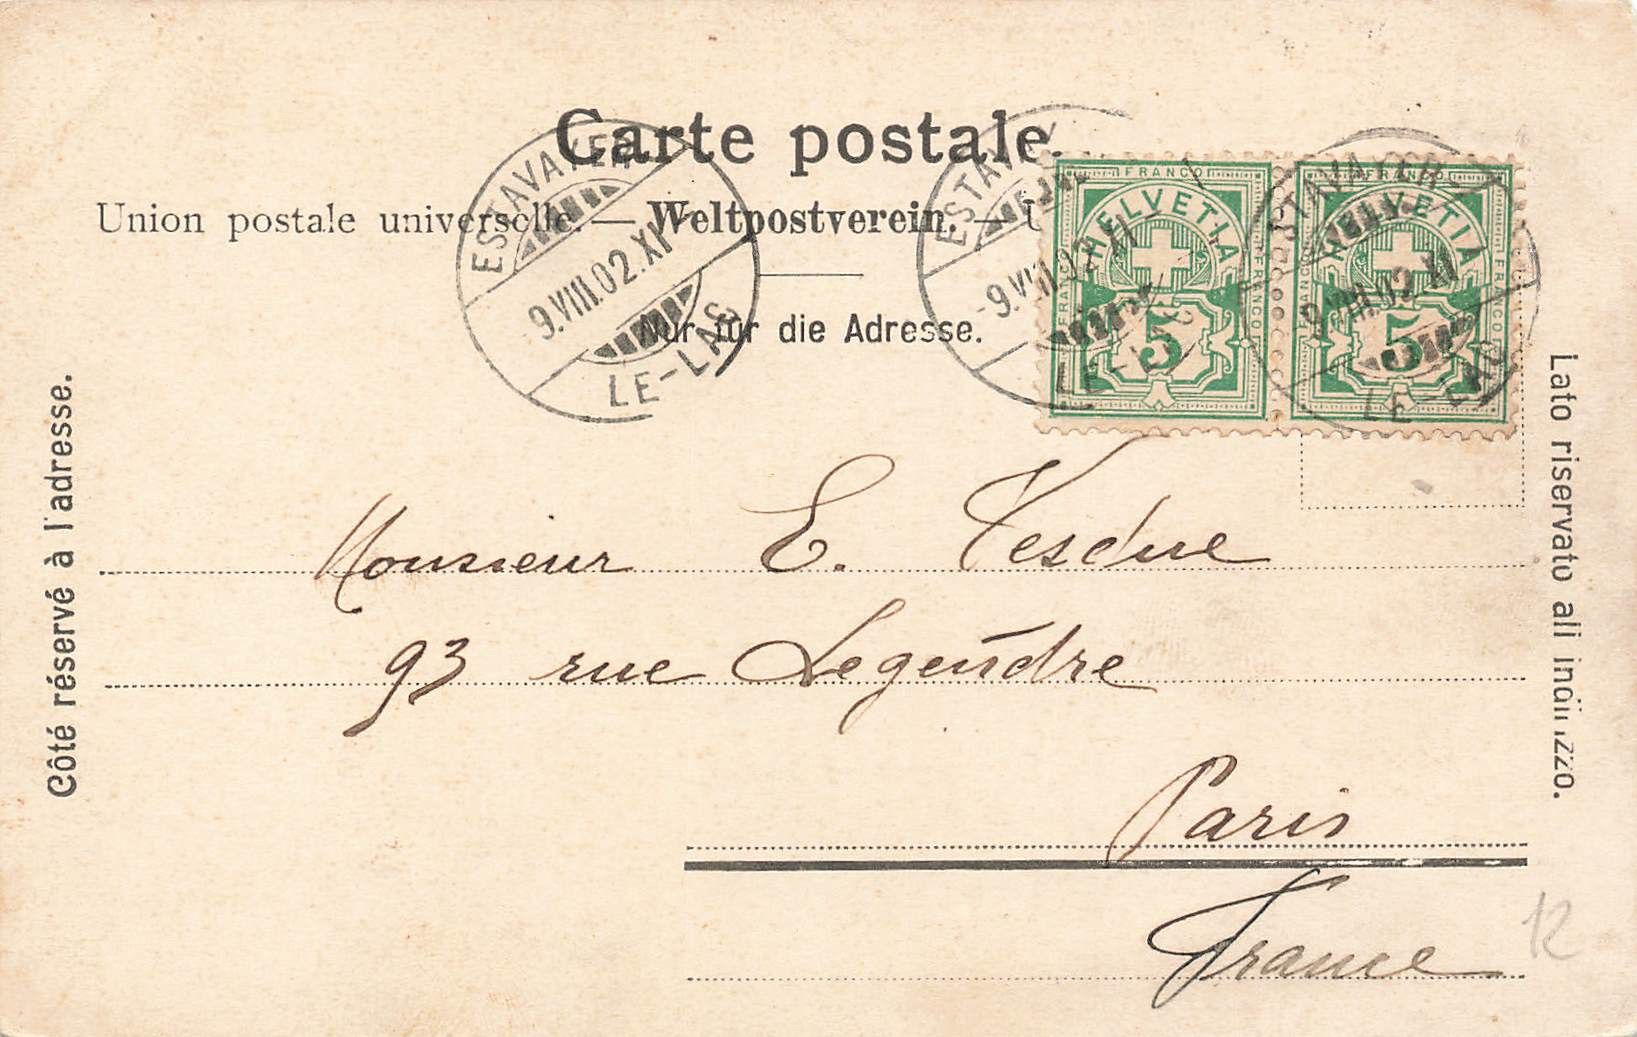 Carte postale.
Union postale universelle. — Weltpostverein. —
Nur für die Adresse.
Côté réservé à l'adresse.
Lato riservato all indirizzo.
ESTAVAYER
9.VIII.02.XI
LE-LAC
ESTAVAY
9.VIII.02.XI
LE-L
ESTAVAYER-
9.VIII.02.XI
LE-LAC
FRANCO
HELVETIA
FRANCO
FRANCO
5
FRANCO
HELVETIA
FRANCO
FRANCO
5
Monsieur E.
93 rue Legendre
Paris
France
12